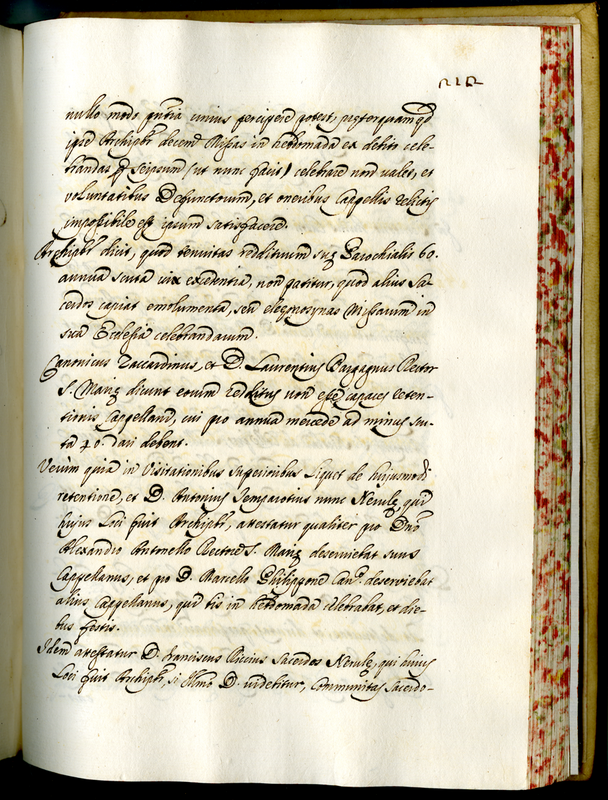 212
nullo modo pntia unius percipere potest, preterquamqd
ipse Archipbr decem Missas in hebdomada ex debito cele-
brandas p seipsum (ut nunc facit) celebrare non valet, et
voluntatibus Defunctorum, et oneribus Cappellis relictis
impossibile est ipsum satisfacere.
Archipbr dicit, quod tenuitas reddituum suę Parochialis 60.
annua scuta vix excedentia, non patitur, quod alius Sa-
cerdos capiat emolumenta, seu elegmosynas Missarum in
sua Ecclesia celebrandarum.
Canonicus Zaccardinus, et D. Laurentius Rector
S. Marię dicunt eorum redditus non esse capaces reten-
tionis Cappellani, cui pro annua mercede ad minus scu-
ta 40. dari debent.
Verum quia in Visitationibus superioribus liquet de hujusmodi
retentione, et D. Antonius nunc Nemlę, qui
hujus Loci fuit Archipbr, attestatur qualiter pro Dno
Alexandro Antonello Rectore S. Marię deserviebat suus
Cappellanus, et pro D. Marcello Philippone Canco deserviebat
alius Cappellanus, qui bis in hebdomada celebrabat, et die-
bus festis.
Idem attestatur D. Franciscus Riccius Sacerdos Nemlę, qui hujus
Loci fuit Archipbr, si Illmo D. videtitur, Communitas Sacerdo-